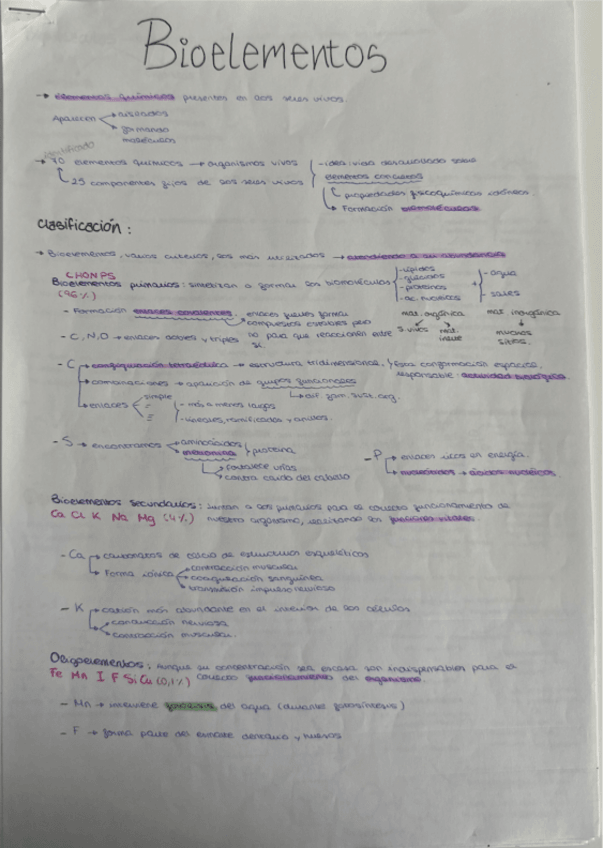 Bioelementos
→ elementos químicos presentes en los seres vivos.
Aparecen → aislados
→ formando moléculas
identificado
→ 70 elementos químicos → organismos vivos
→ 25 componentes fijos de los seres vivos
- idea: vida desarrollado sobre elementos concretos
→ propiedades fisicoquímicas idóneas.
→ Formación biomoléculas
Clasificación:
→ Bioelementos, varios criterios, los más utilizados → atendiendo a su abundancia
CHONPS
Bioelementos primarios: sintetizan o forman las biomoléculas
(96%)
- lípidos
- glúcidos
- proteínas
- ac. nucleicos
+ - agua
- sales
mat. orgánica
mat. inorgánica
s. vivos
mat. inerte
muchos sitios.
- Formación enlaces covalentes. enlaces fuertes forman compuestos estables pero no para que reaccionen entre sí.
- C, N, O → enlaces dobles y triples
- C → configuración tetraédrica → estructura tridimensional, esta conformación espacial, responsable: actividad biológica.
→ combinaciones → aparición de grupos funcionales
→ dif. fam. sust. org.
→ enlaces simple
=
≡
- más o menos largos
- lineales, ramificados y anillos.
- S → encontramos → aminoácidos
→ metionina
proteína
→ fortalece uñas
→ contra caída del cabello
- P → enlaces ricos en energía.
→ nucleótidos → ácidos nucleicos.
Bioelementos secundarios: ayudan a los primarios para el correcto funcionamiento de
Ca Cl K Na Mg (4%) nuestro organismo, realizando las funciones vitales.
- Ca → carbonatos de calcio de estructuras esqueléticas
→ Forma iónica → contracción muscular
→ coagulación sanguínea
→ transmisión impulso nervioso
- K → catión más abundante en el interior de las células
→ conducción nerviosa
→ contracción muscular.
Oligoelementos: Aunque su concentración sea escasa son indispensables para el
Fe Mn I F Si Cu (0,1%) correcto funcionamiento del organismo.
- Mn → interviene fotólisis del agua (durante fotosíntesis)
- F → forma parte del esmalte dentario y huesos